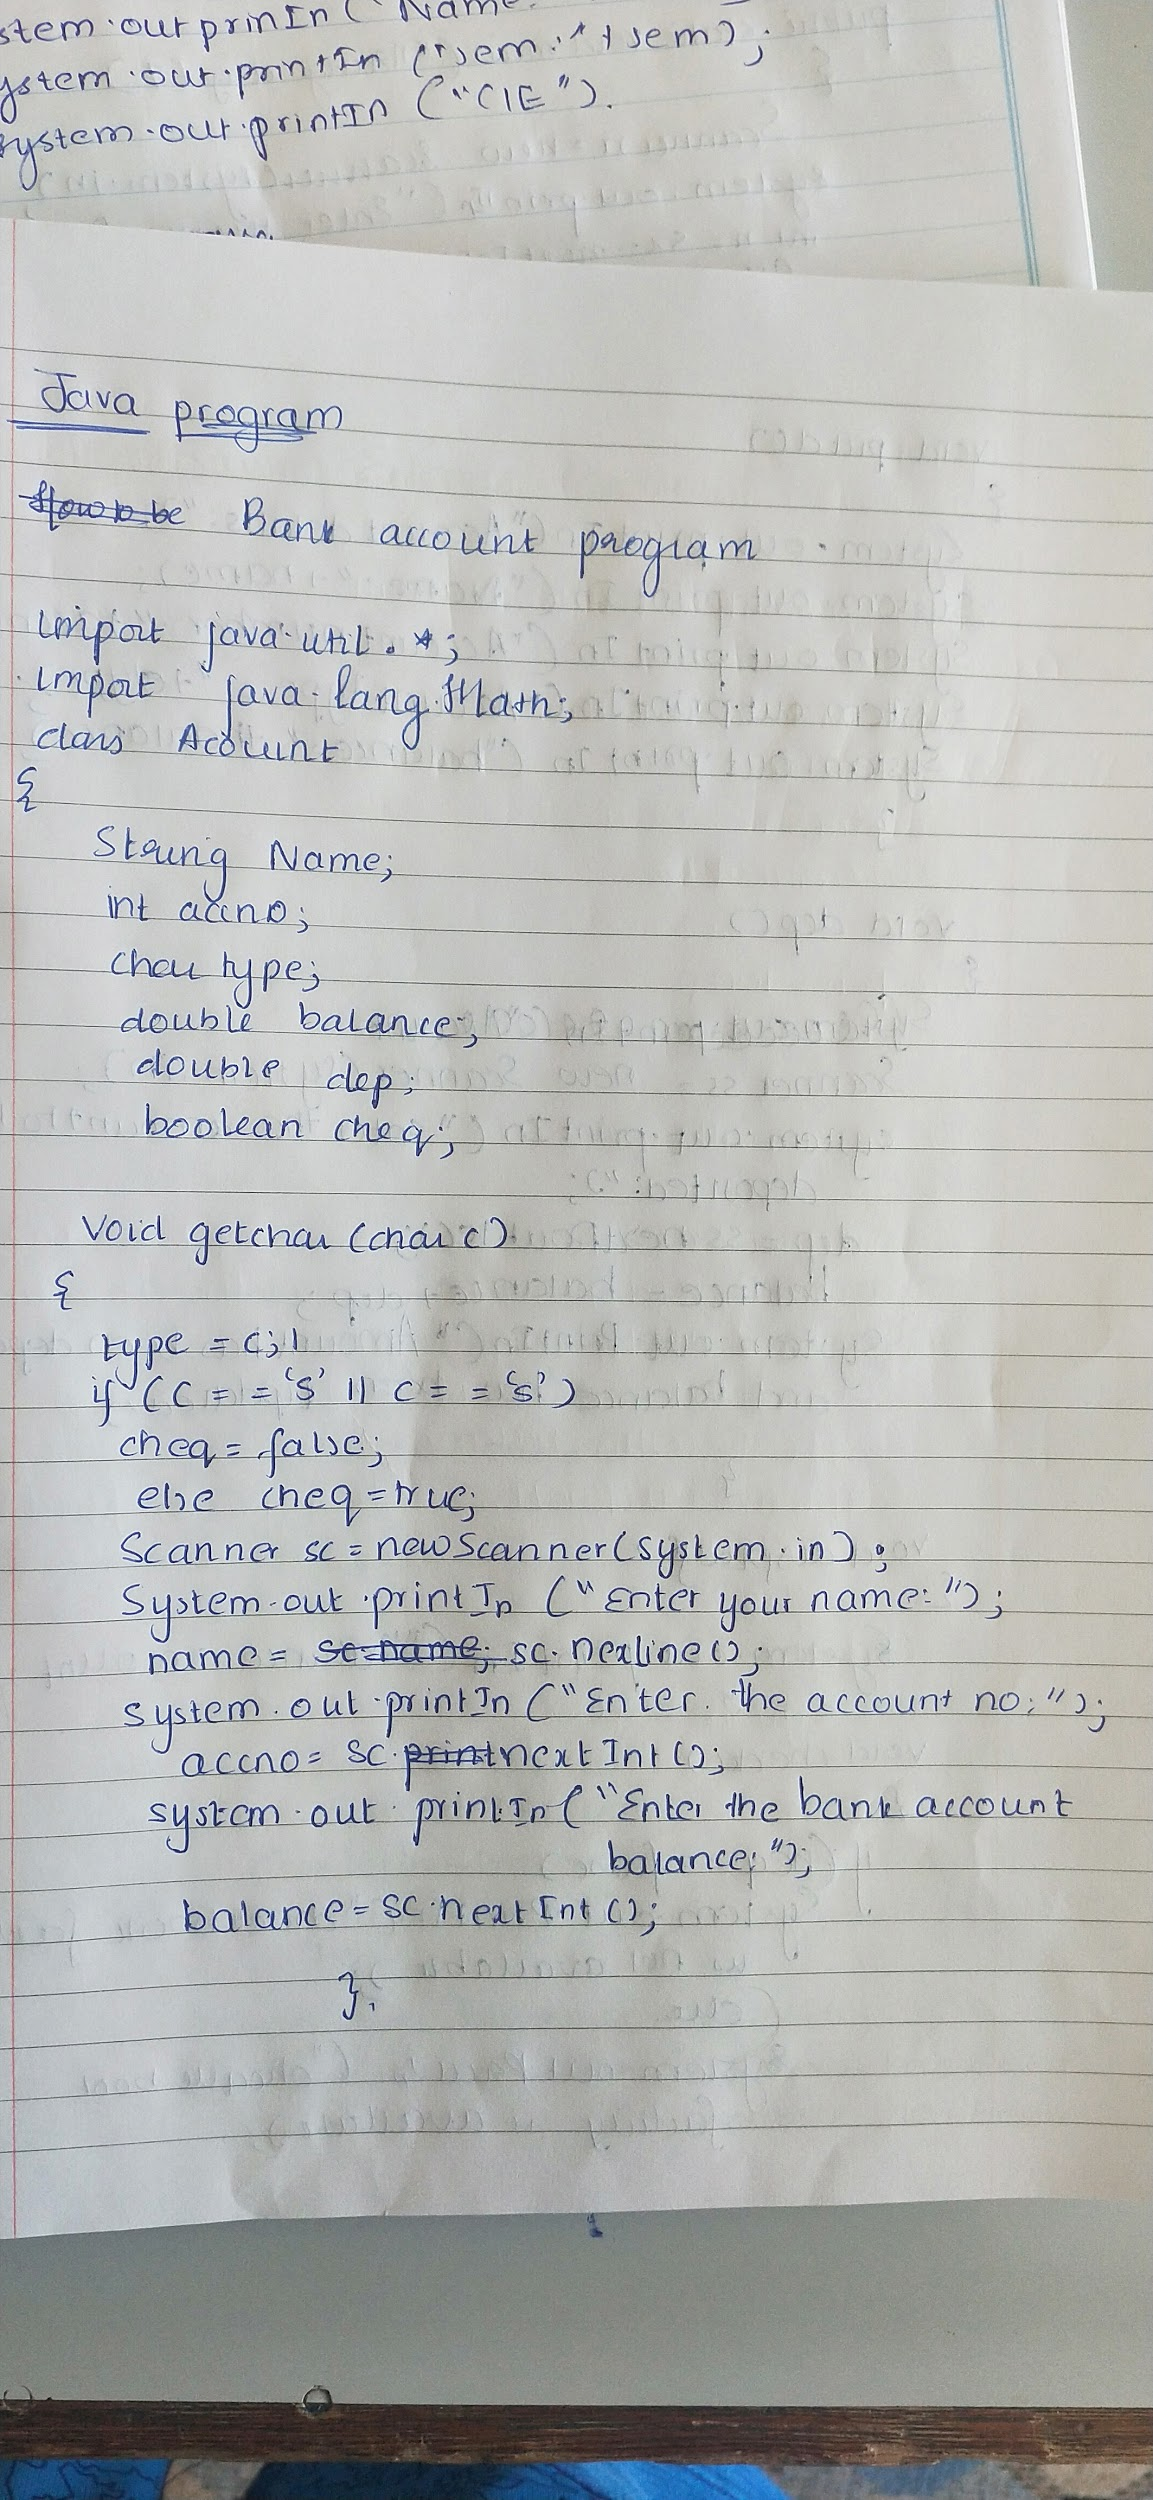 stem.out prinIn ( Name
ystem.out.printIn ("sem:"+sem);
system.out.printIn ("CIE").
Java program
Bank account program
import java.util.*;
import java.lang.Math;
class Account
{
String Name;
int accno;
char type;
double balance;
double dep;
boolean cheq;
Void getchar (char c)
{
type = c;
if (c = = 's' || c = = 's')
cheq = false;
else cheq = true;
Scanner sc = new Scanner(system.in);
System.out.printIn ("Enter your name:");
name = sc.nexline();
system.out.printIn ("Enter. the account no:");
accno = sc.nextInt();
system.out.printIn("Enter the bank account
balance:");
balance = sc.nextInt();
}.